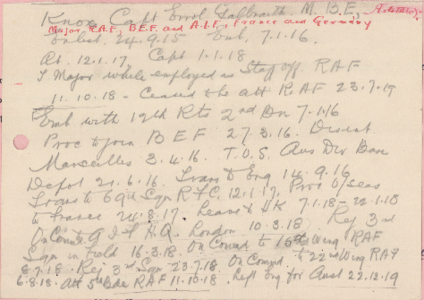 Knox, Capt Errol Galbraith. M.B.E.,
Major, R.A.F., B.E.F. and A.I.F., France and Germany
Enlist. 24.9.15 Emb. 7.1.16.
Lt. 12.1.17. Capt 1.1.18
T. Major while employed as Staff off. RAF
11.10.18 - Ceased to be att RAF 23.7.19
Emb with 12th Rts 2nd Bn 7.1.16
Proc to join B E F 27.3.16. Disemb
Marseilles 3.4.16. T.O.S. Aus Div Base
Depot 21.6.16. Trans to Eng 14.9.16
Trans to 69 Sqn R F C. 12.1.17. Proc O/seas
to France 24.8.17. Leave to UK 7.1.18 - 22.1.18
On Comd A I F H.Q. London 10.3.18. Rej 3rd
Sqn in Field 16.3.18. On Comd to 15th Wing RAF
8.7.18. Rej 3rd Sqn 23.7.18. On Comd to 22nd Wing RAF
6.8.18. Att 5th Bde RAF 11.10.18. Left Eng for Aust 22.12.19